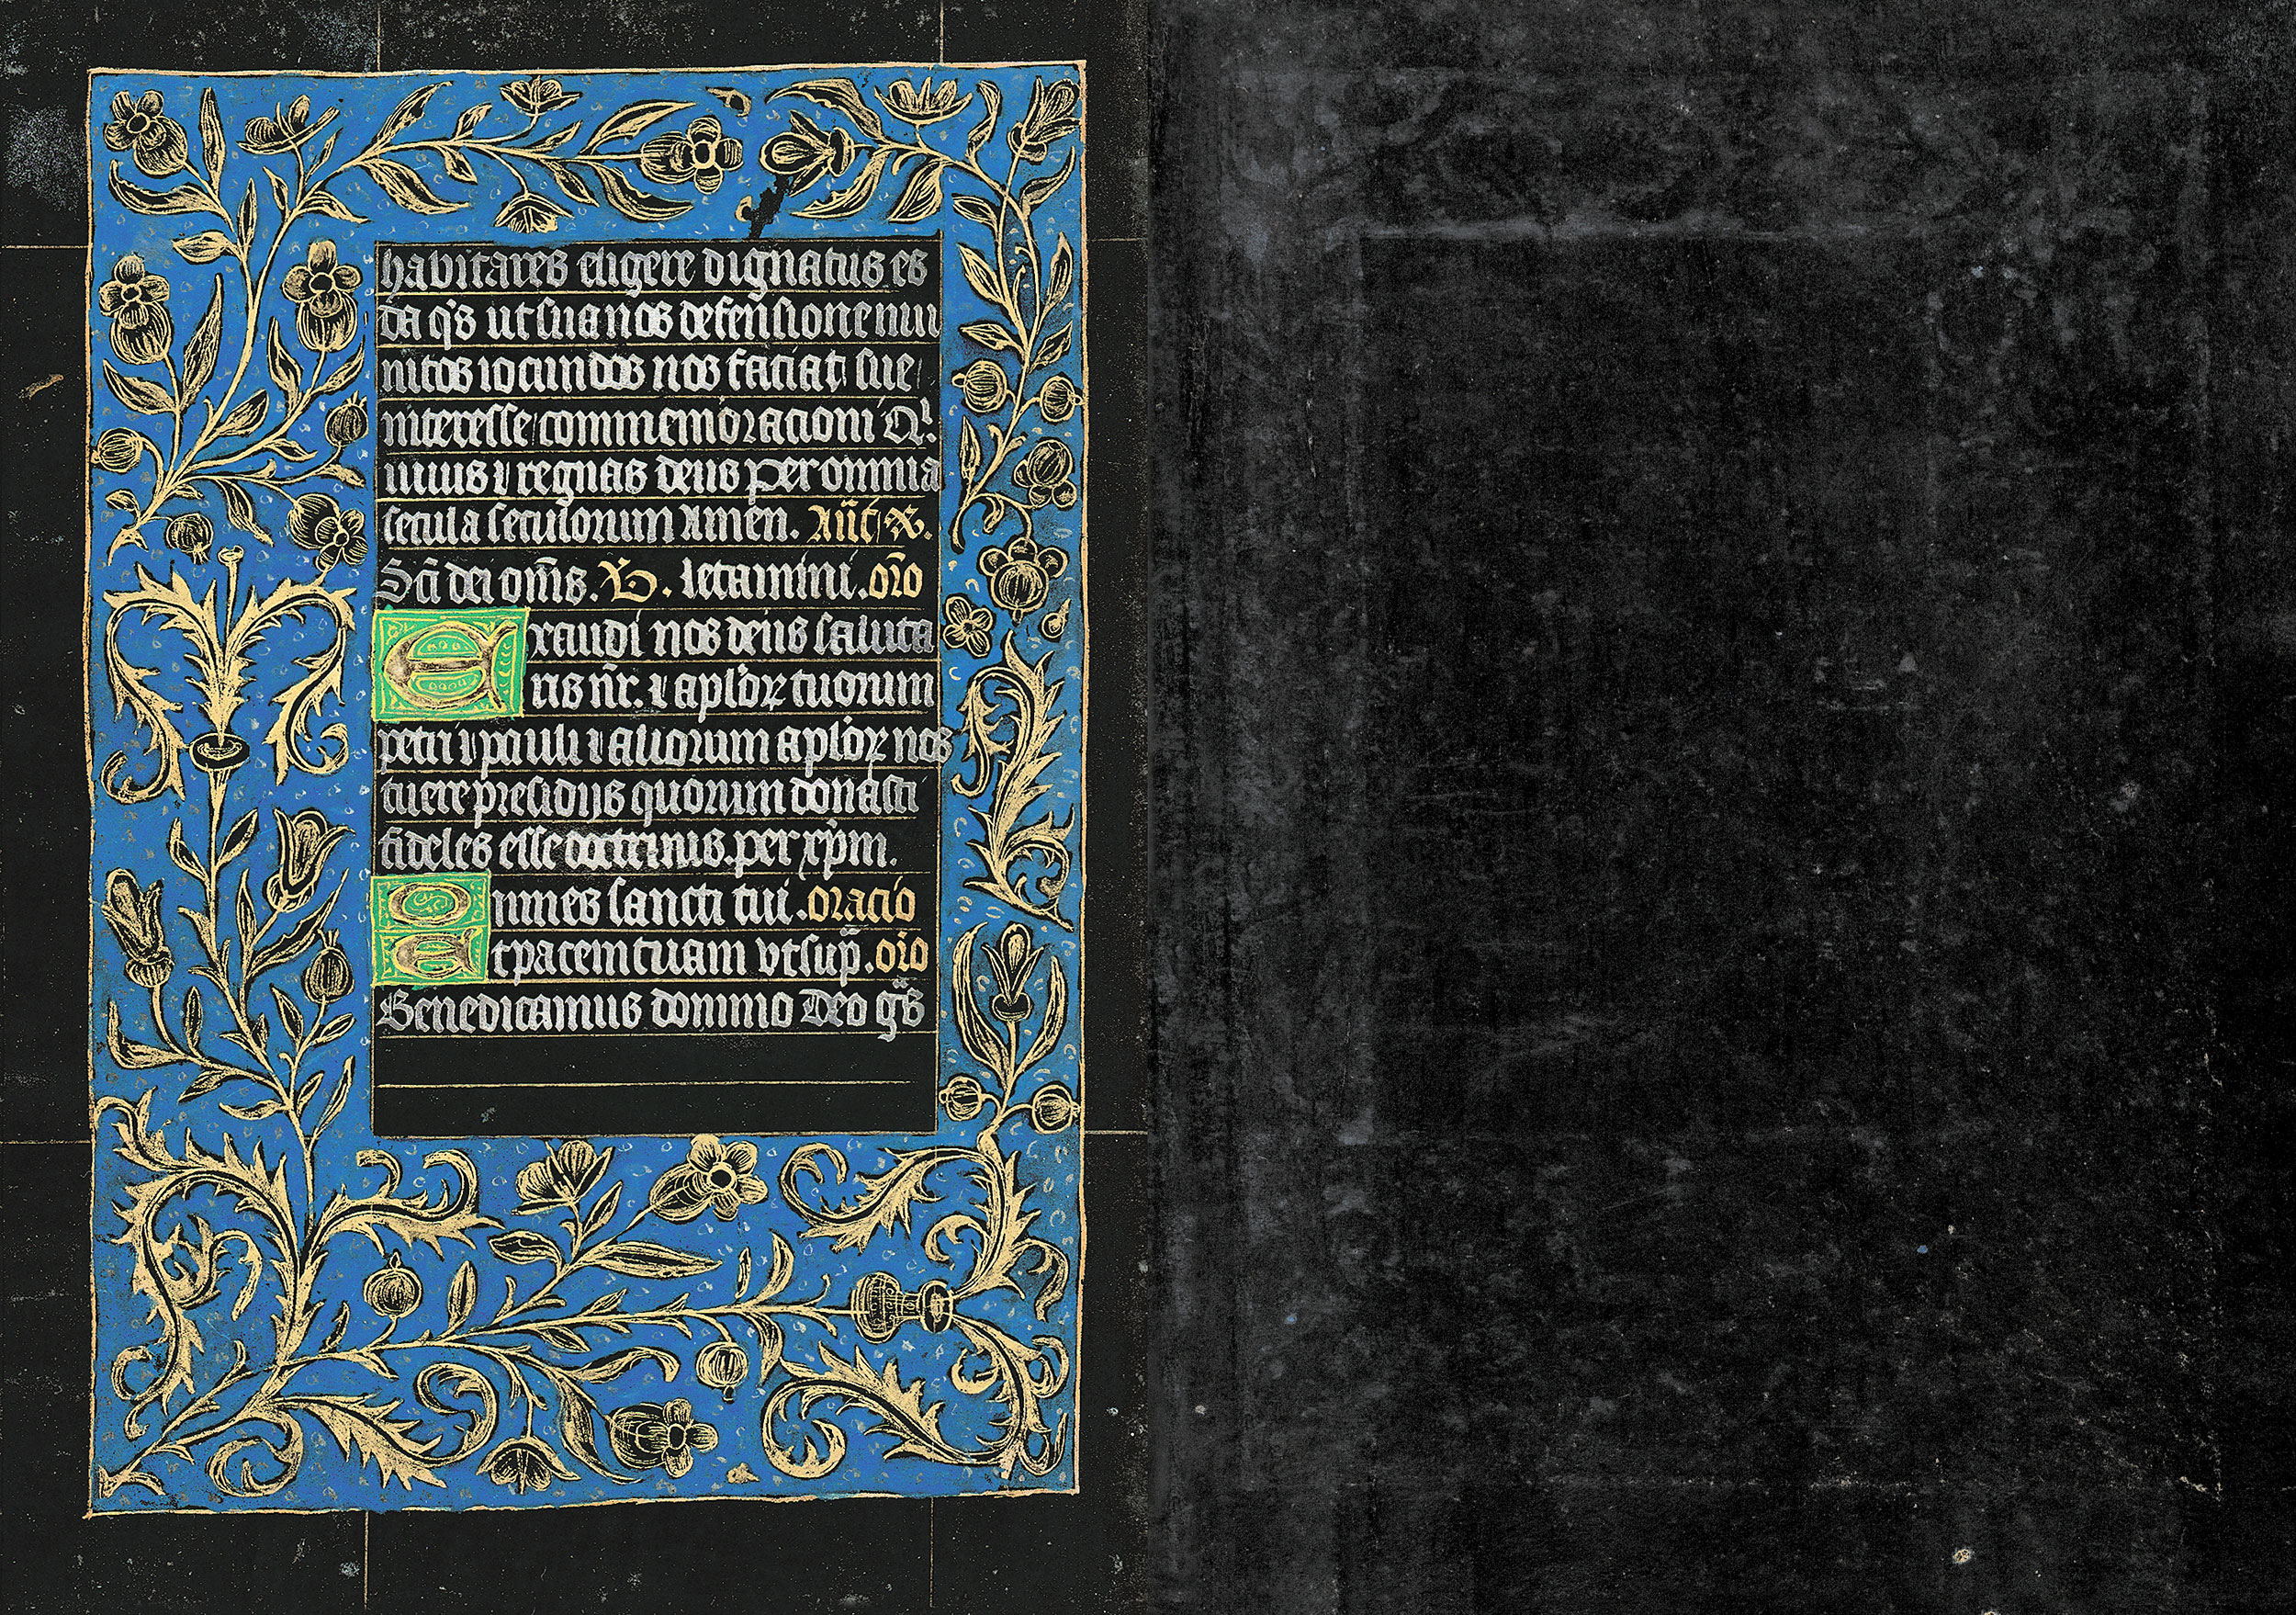 habitares eligere dignatus es
da q̄s ut sua nos defensione mu
nitos iocundos nos faciat sue
interesse commemoracioni Qͥ
viuis ⁊ regnas deus per omnia
secula seculorum Amen. Ant̄ x.
Sc̄i dei om̄s. V̶. letamini. or̄o
Exaudi nos deus saluta
ris nr̄. ⁊ apl'oꝝ tuorum
petri ⁊ pauli ⁊ aliorum apl'oꝝ nos
tuere presidijs quorum donasti
fideles esse doctrinis. per xp̄m.
Omnes sancti tui. oracio
Et pacem tuam vt sup̄ᵃ. or̄o
Benedicamus domino Deo gᵃs